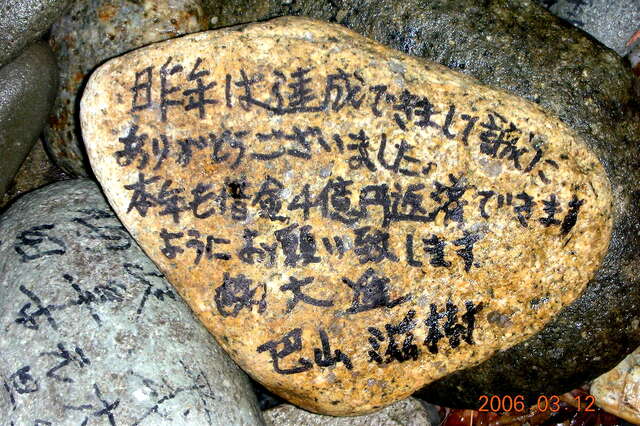 昨年は達成できまして誠に
ありがとうございました。
本年も借金4億円返済できます
ようにお願い致します
大進
巴山 滋樹
2006.03.12